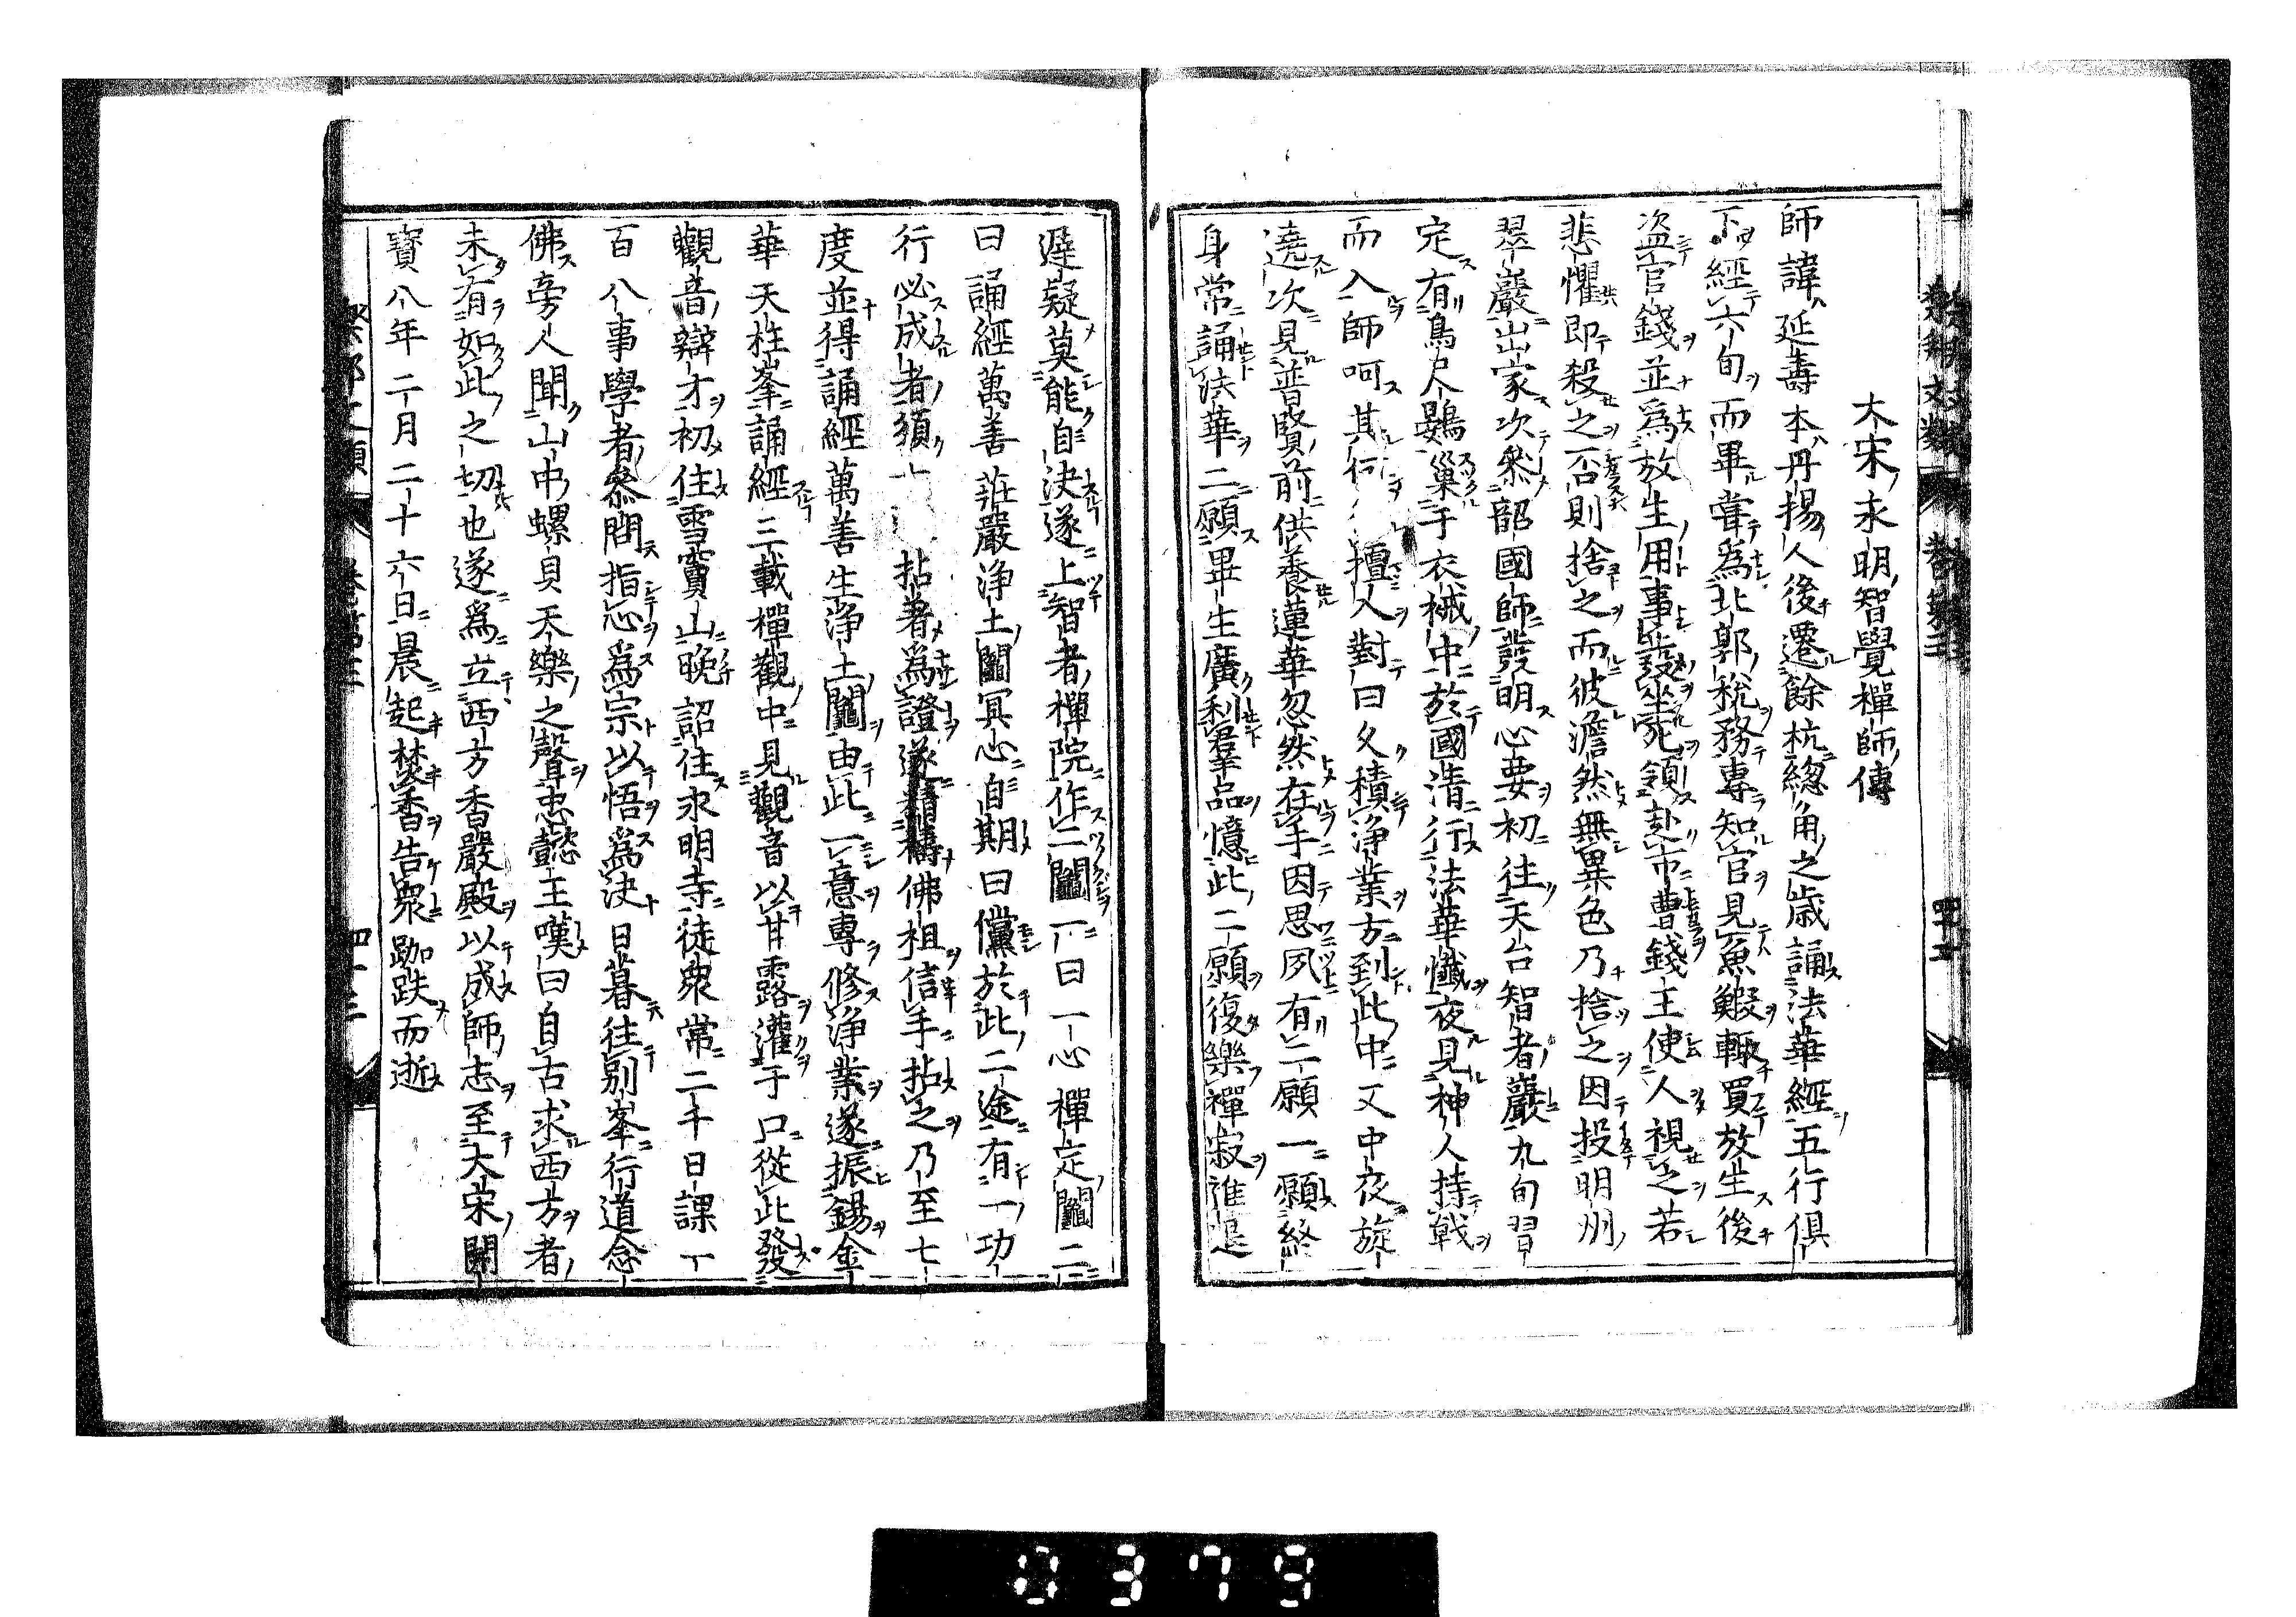 大宋永明智覺禪師傳
師諱延壽本丹揚人後遷餘杭總角之歳誦法華經五行俱
下經六旬而畢甞為北郭稅務專知官見魚鰕輙買放生後
盗官錢並為放生用事發坐死領赴市曹錢王使人視之若
悲懼即殺之否則捨之而彼澹然無異色乃捨之因投明州
翠巖出家次叅韶國師發明心要初往天台智者巖九旬習
定有鳥尺鷃巢于衣裓中於國清行法華懺夜見神人持戟
而入師呵其何擅入對曰久積淨業方到此中又中夜旋
遶次見普賢前供養蓮華忽然在手因思夙有二願一願終
身常誦法華二願畢生廣利羣品憶此二願復樂禪寂進退
遲疑莫能自決遂上智者禪院作二鬮一曰一心禪定鬮二
曰誦經萬善莊嚴淨土鬮冥心自期曰儻於此二途有一功
行必成者須七拈著為證遂精禱佛祖信手拈之乃至七
度並得誦經萬善生淨土鬮由此一意專修淨業遂振錫金
華天柱峯誦經三載禪觀中見觀音以甘露灌于口從此發
觀音辯才初住雪竇山晚詔住永明寺徒衆常二千日課一
百八事學者叅問指心為宗以悟為決日暮往別峯行道念
佛旁人聞山中螺貝天樂之聲忠懿王嘆曰自古求西方者
未有如此之切也遂為立西方香嚴殿以成師志至大宋開
寳八年二月二十六日晨起焚香告衆跏趺而逝